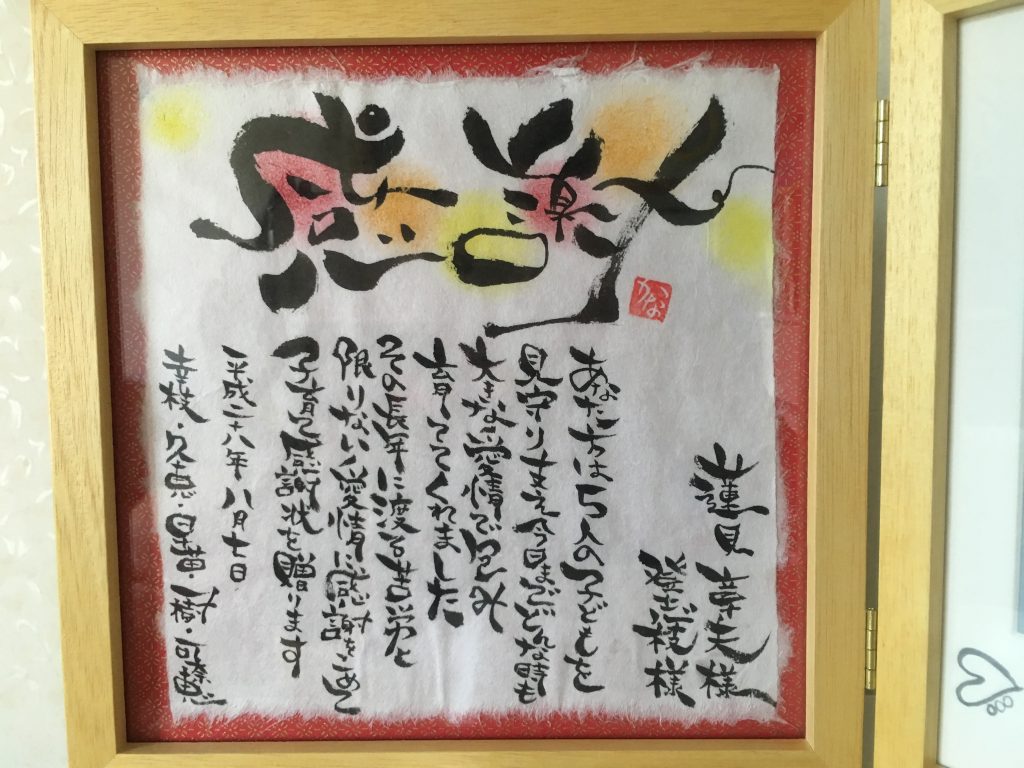 感謝
かな
蓮見 幸夫様
登志枝様
あなた方は5人の子どもを
見守り支え今日までどんな時も
大きな愛情で包み
育ててくれました
その長年に渡る苦労と
限りない愛情に感謝をこめて
子育て感謝状を贈ります
平成二十八年八月七日
幸枝・久恵・早苗・一樹・可奈恵